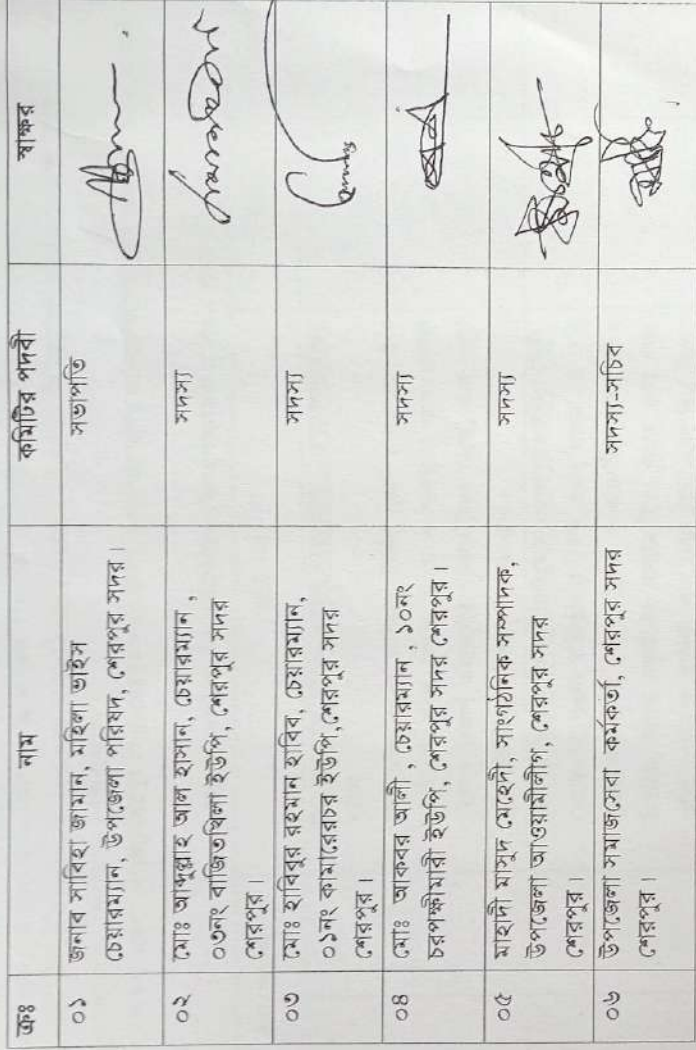 ক্রঃ নাম কমিটির পদবী স্বাক্ষর
০১ জনাব সাবিহা জামান, মহিলা ভাইস সভাপতি
চেয়ারম্যান, উপজেলা পরিষদ, শেরপুর সদর।
০২ মোঃ আব্দুল্লাহ আল হাসান, চেয়ারম্যান , সদস্য
০৩নং বাজিতখিলা ইউপি, শেরপুর সদর
শেরপুর।
০৩ মোঃ হাবিবুর রহমান হাবিব, চেয়ারম্যান, সদস্য
০১নং কামারেরচর ইউপি,শেরপুর সদর
শেরপুর।
০৪ মোঃ আকবর আলী , চেয়ারম্যান , ১০নং সদস্য
চরপক্ষীমারী ইউপি, শেরপুর সদর শেরপুর।
০৫ মাহাদী মাসুদ মেহেদী, সাংগঠনিক সম্পাদক, সদস্য
উপজেলা আওয়ামীলীগ, শেরপুর সদর
শেরপুর।
০৬ উপজেলা সমাজসেবা কর্মকর্তা, শেরপুর সদর সদস্য-সচিব
শেরপুর।